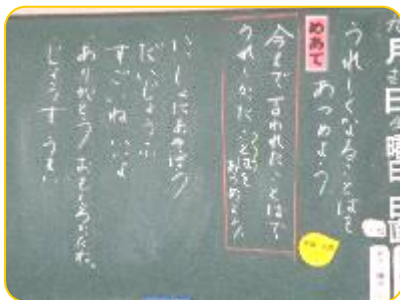 月 日 曜日 日直
うれしくなることばを
あつめよう
めあて
今まで言われたことばで
うれしかったことばを
あつめよう
いっしょにあそぼう
だいじょうぶ
すごいね いいよ
ありがとう おもしろかったね。
じょうず うまい